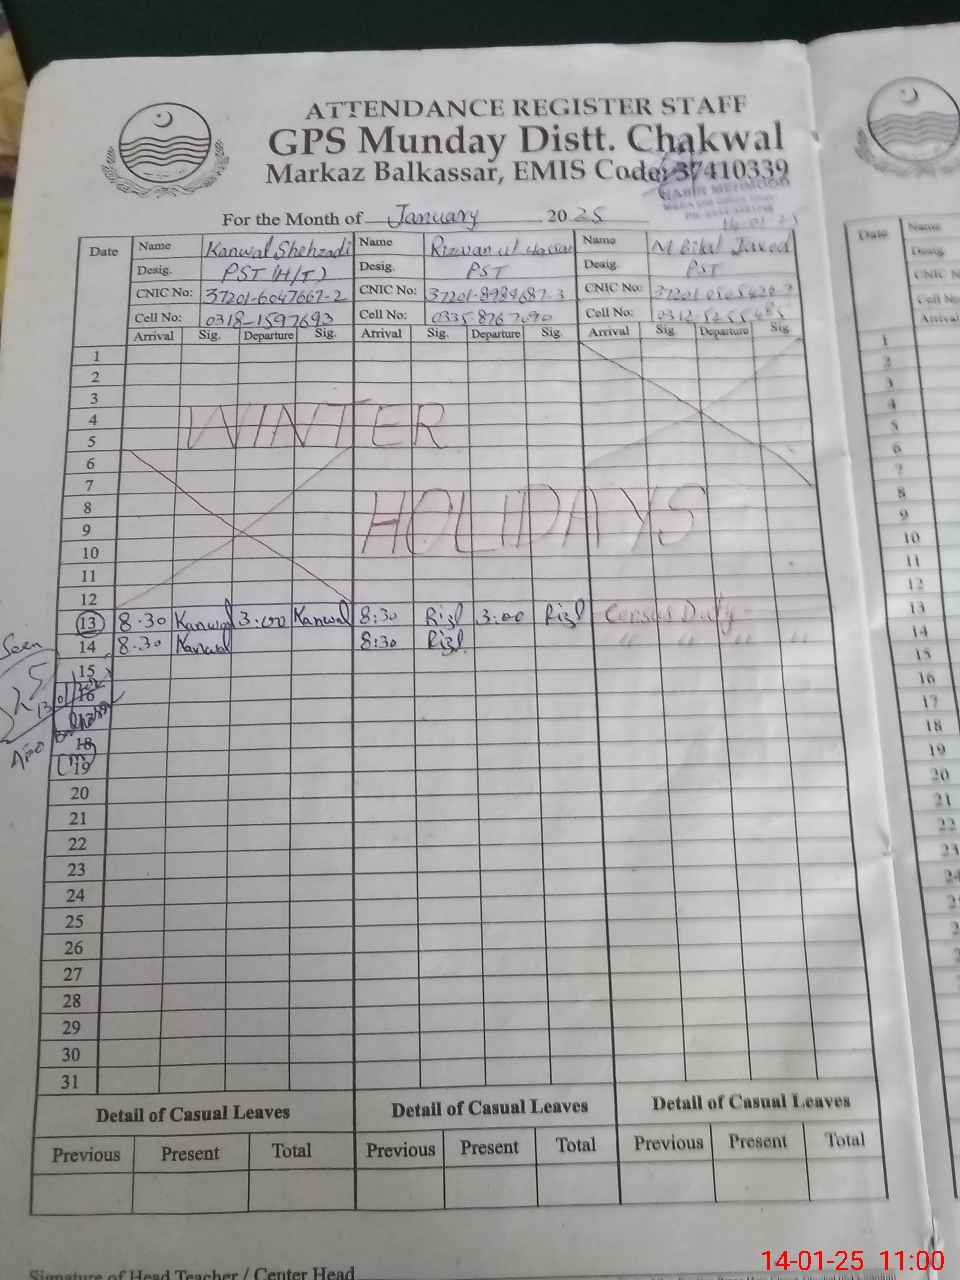 ATTENDANCE REGISTER STAFF
GPS Munday Distt. Chakwal
Markaz Balkassar, EMIS Code: 37410339
For the Month of January 2025
Date Name Kanwal Shehzadi Name Rizwan ul Name M Bilal Javed
Desig. PST (H/T) Desig. PST Desig. PST
CNIC No: 37201-6047667-2 CNIC No: CNIC No:
Cell No: 0318-1597693 Cell No: 0335-8767090 Cell No:
Arrival Sig. Departure Sig. Arrival Sig. Departure Sig. Arrival Sig. Departure Sig
1
2
3
4
5
WINTER
6
7
8
9
10
HOLIDAYS
11
12
13 8.30 Kanwal 3:00 Kanwal 8:30 Rizl 3.00 Rizl Census Duty
14 8.30 Kanwal 8:30 Rizl " " " "
Seen
15
16
18
19
20
21
22
23
24
25
26
27
28
29
30
31
Detail of Casual Leaves Detail of Casual Leaves Detail of Casual Leaves
Previous Present Total Previous Present Total Previous Present Total
Signature of Head Teacher / Center Head
Date Name
Desig.
CNIC N
Cell No
Arrival
1
2
3
4
5
6
7
8
9
10
11
12
13
14
15
16
17
18
19
20
21
22
23
14-01-25 11:00